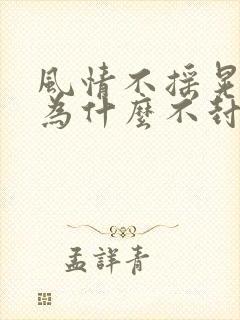 風情不搖晃
為什麼不封
孟詳青